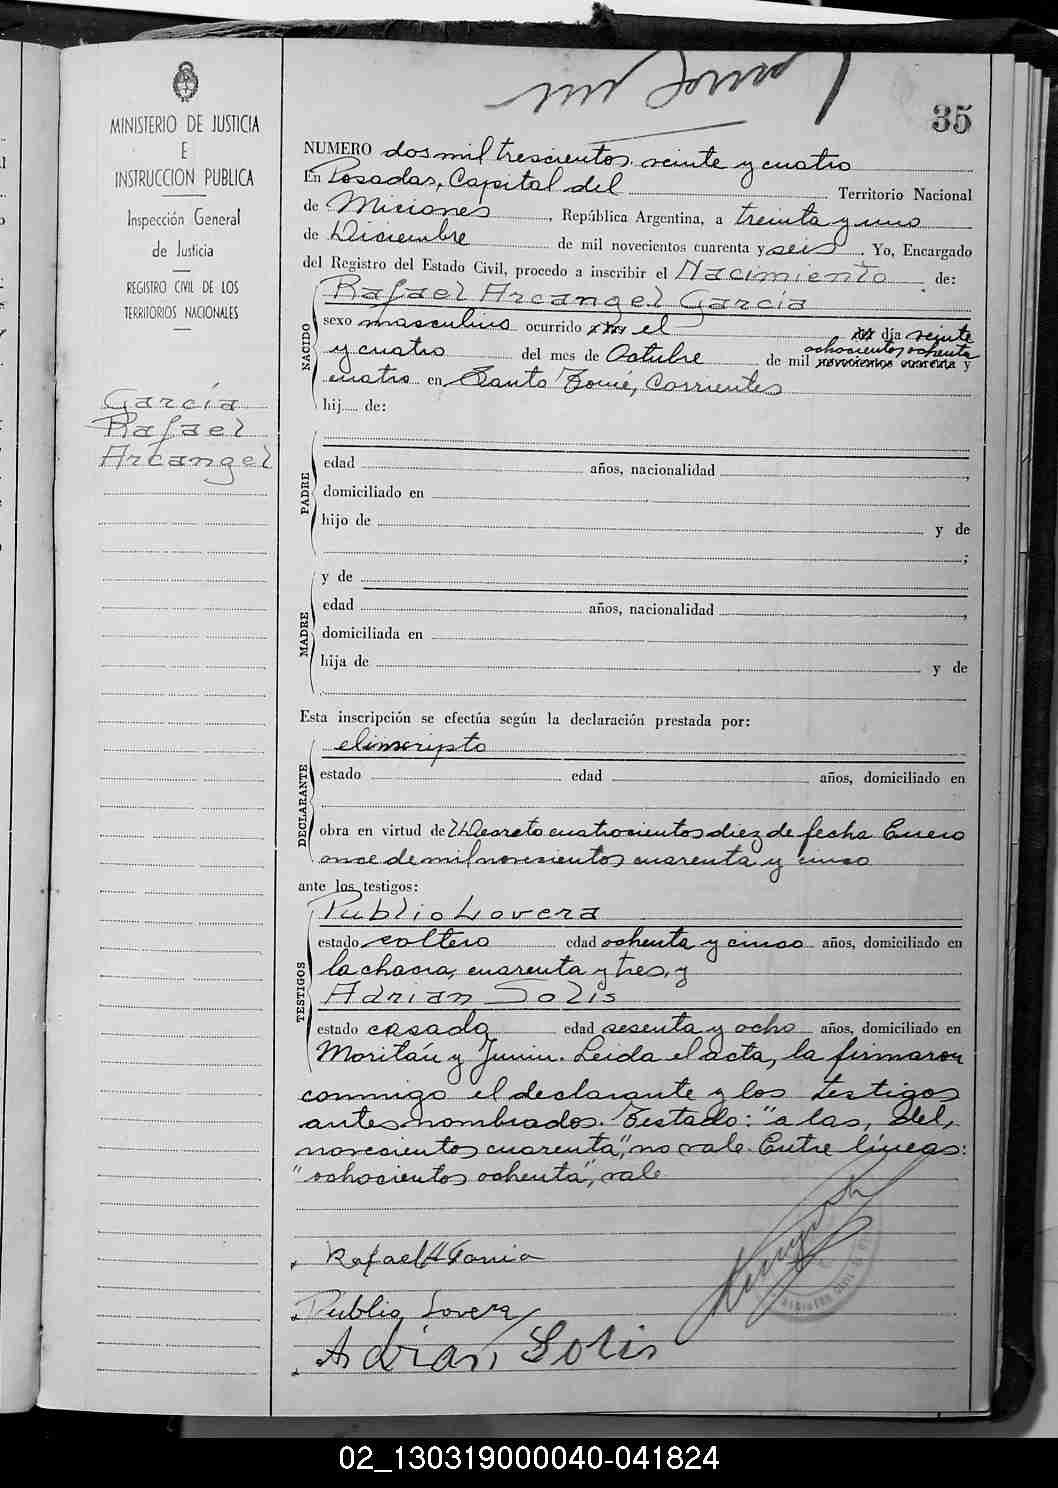 35
MINISTERIO DE JUSTICIA
E
INSTRUCCION PUBLICA
Inspección General
de Justicia
REGISTRO CIVIL DE LOS
TERRITORIOS NACIONALES
García
Rafael
Arcangel
NUMERO dos mil trescientos veinte y cuatro
En Posadas, Capital del Territorio Nacional
de Miciones, República Argentina, a treinta y uno
de Diciembre de mil novecientos cuarenta y seis. Yo, Encargado
del Registro del Estado Civil, procedo a inscribir el Nacimiento de:
Rafael Arcangel García
NACIDO
sexo masculino ocurrido el día veinte
ochocientos ochenta
y cuatro del mes de Octubre de mil novecientos cuarenta y
cuatro en Santo Tomé, Corrientes
hij de:
PADRE
edad años, nacionalidad ,
domiciliado en
hijo de y de
;
MADRE
y de
edad años, nacionalidad ,
domiciliada en
hija de y de
Esta inscripción se efectúa según la declaración prestada por:
DECLARANTE
el inscripto
estado edad años, domiciliado en
obra en virtud de Decreto cuatrocientos diez de fecha Enero
once de mil novecientos cuarenta y cinco
ante los testigos:
TESTIGOS
Publio Lovera
estado soltero edad ochenta y cinco años, domiciliado en
la chacra, cuarenta y tres, y
Adrian Solis
estado casado edad sesenta y ocho años, domiciliado en
Moritán y Junin. Leida el acta, la firmaron
conmigo el declarante y los testigos
antes nombrados. Testado: "a las, del,
novecientos cuarenta", no vale. Entre líneas:
"ochocientos ochenta", vale
Rafael A Garcia
Publio Lovera
Adrian Solis
02_130319000040-041824